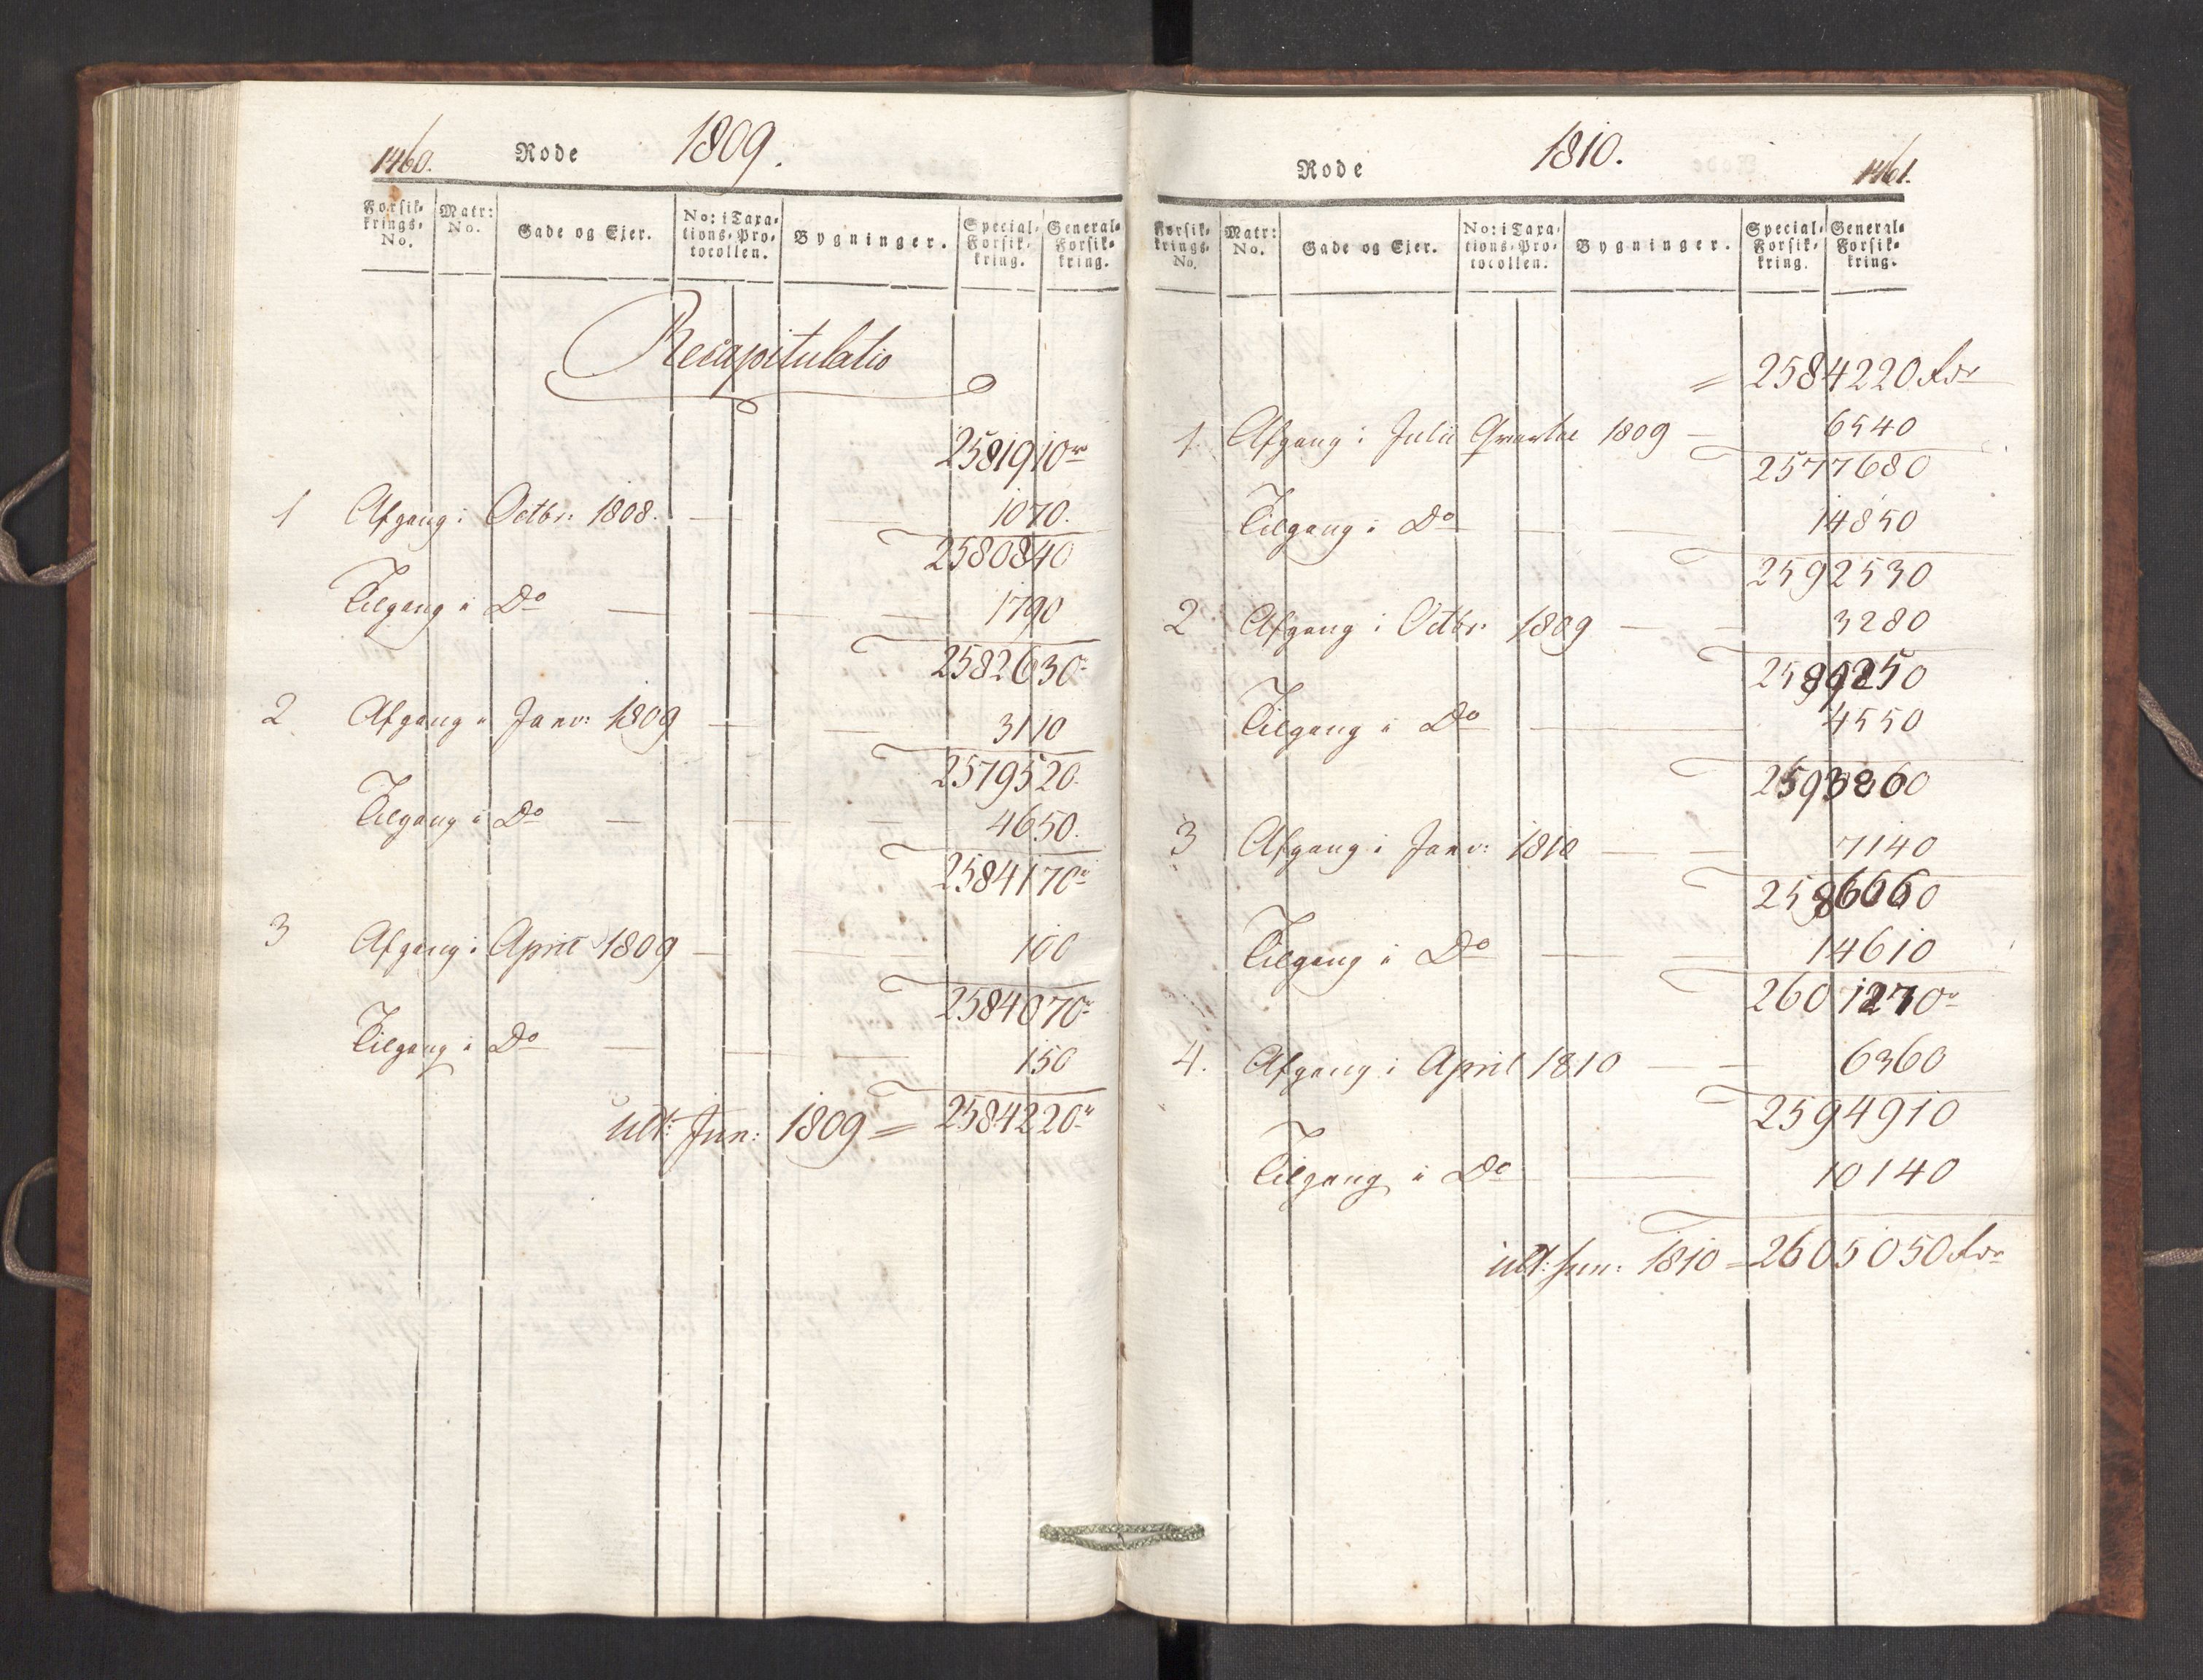 1460. Rode 1809.
Forsik-krings-No. Matr: No. Gade og Ejer. No: i Taxa-tions-Pro-tocollen. Bygninger. Special-Forsik-kring. General-Forsik-kring.
Recapitulatio
2581910
1 Afgang i Octbr: 1808. — 1070.
2580840
Tilgang i Do — 1790
2582630
2 Afgang i Janv: 1809 — 3110
2579520.
Tilgang i Do — 4650.
2584170
3 Afgang i April 1809 — 100
2584070
Tilgang i Do — 150
ult: Jun: 1809 = 2584220
Rode 1810. 1461.
Forsik-krings-No. Matr: No. Gade og Ejer. No: i Taxa-tions-Pro-tocollen. Bygninger. Special-Forsik-kring. General-Forsik-kring.
= 2584220 rdr
1. Afgang i Julii Qvartal 1809 — 6540
2577680
Tilgang i Do — 14850
2592530
2 Afgang i Octbr: 1809 — 3280
2589250
Tilgang i Do — 4550
2593800
3 Afgang i Janv: 1810 — 7140
2586660
Tilgang i Do — 14610
2601270
4. Afgang i April 1810 — 6360
2594910
Tilgang i Do — 10140
ult: Jun: 1810 = 2605050 rdr